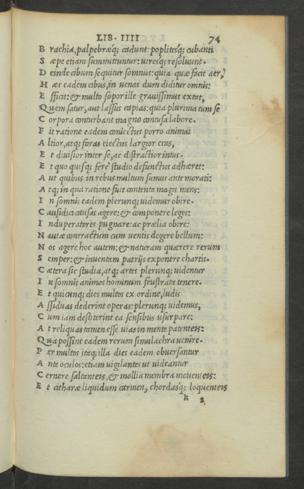 LIB. IIII 74
Brachia, palpebræq; cadunt: poplitesq; cubanti
Sæpe etiam summittuntur: uiresq; resoluunt.
Deinde cibum sequitur somnus: quia quæ facit aer,
Hæc eadem cibus, in uenas dum diditur omnis:
Efficit: & multo sopor ille grauissimus extat,
Quem satur, aut lassus capias: quia plurima tum se
Corpora conturbant magno contusa labore.
Fit ratione eadem coniectus porro animai
Altior, atq; foras eiectus largior eius,
Et diuisior inter se, ac distractior intus.
Et quo quisq; ferè studio defunctus adhæret:
Aut quibus in rebus multum sumus ante morati:
Atq; in qua ratione fuit contenta magis mens:
In somnis eadem plerunq; uidemur obire.
Causidici causas agere: & componere leges:
Induperatores pugnare: ac prælia obire:
Nautæ contractum cum uentis degere bellum:
Nos agere hoc autem: & naturam quærere rerum
Semper: & inuentam patrijs exponere chartis.
Cætera sic studia, atq; artes plerunq; uidentur
In somnis animos hominum frustrata tenere.
Et quicunq; dies multos ex ordine, ludis
Assiduas dederint operas: plerunq; uidemus,
Cum iam destiterint ea sensibus usurpare:
At reliquas tamen esse uias in mente patenteis:
Qua possint eadem rerum simulachra uenire.
Per multos itaq; illa dies eadem obuersantur
Ante oculos: etiam uigilantes ut uideantur
Cernere saltanteis, & mollia membra moventeis:
Et citharæ liquidum carmen, chordasq; loquenteis
k 2